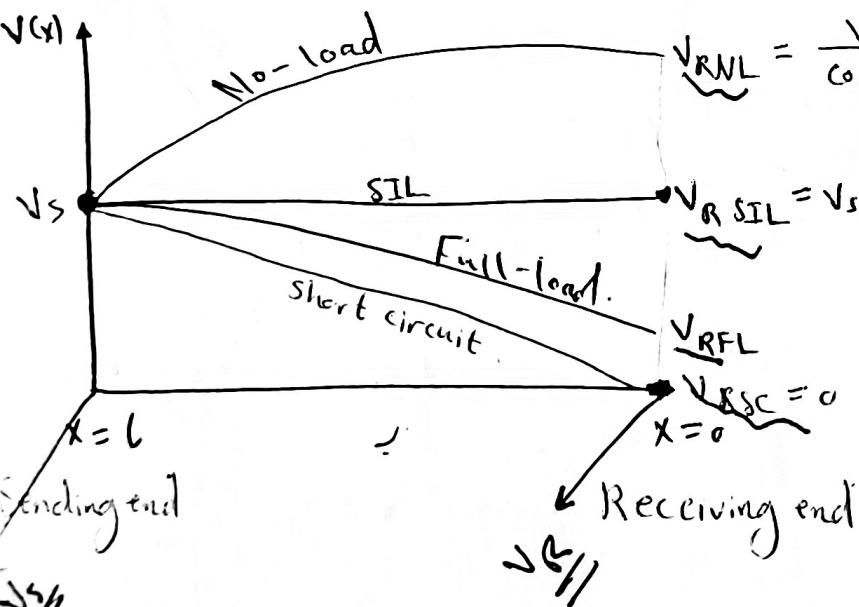 V(x)
No-load
V_RNL = V / Co
Vs
SIL
V_R SIL = Vs
Full-load.
short circuit
V_RFL
V_RSC = 0
x = l
x = 0
Sending end
Receiving end